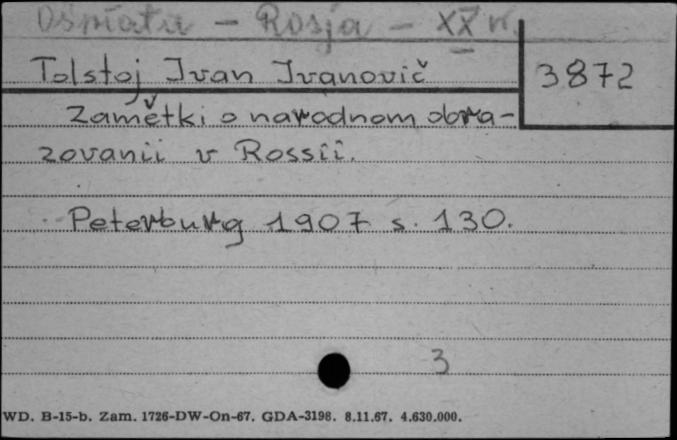 Oświata - Rosja - XX w.
Tolstoj Ivan Ivanovič
3872
Zamětki o narodnom obra-
zovanii v Rossii.
Peterburg 1907 s. 130.
3
WD. B-15-b. Zam. 1726-DW-On-67. GDA-3198. 8.11.67. 4.630.000.